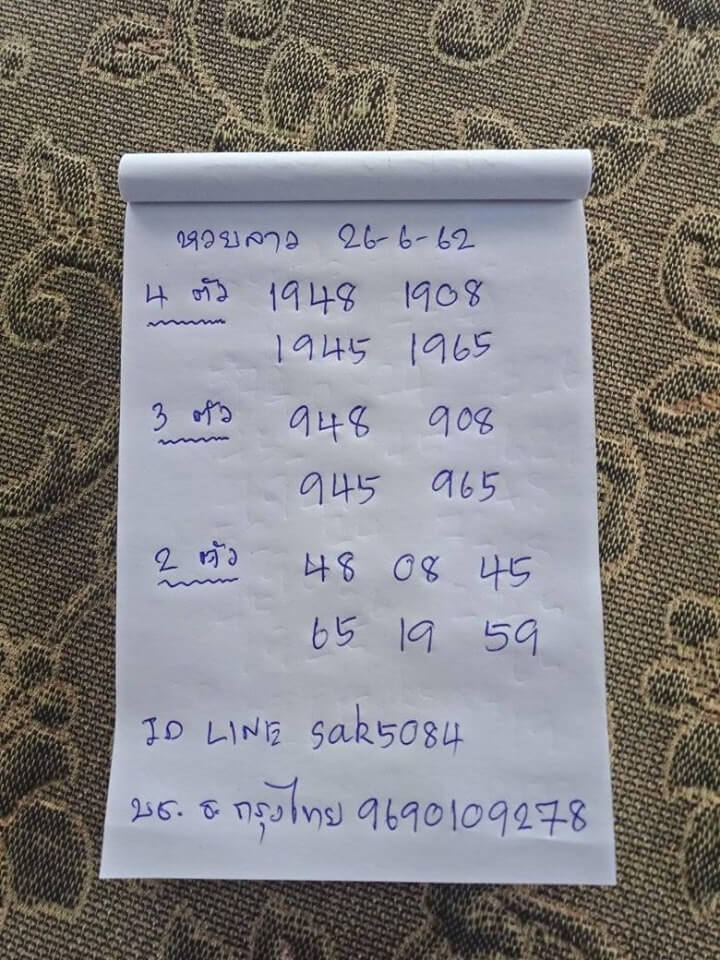 หวยลาว 26-6-62
4 ตัว 1948 1908
1945 1965
3 ตัว 948 908
945 965
2 ตัว 48 08 45
65 19 59
ID LINE sak5084
บช. ธ. กรุงไทย 9690109278